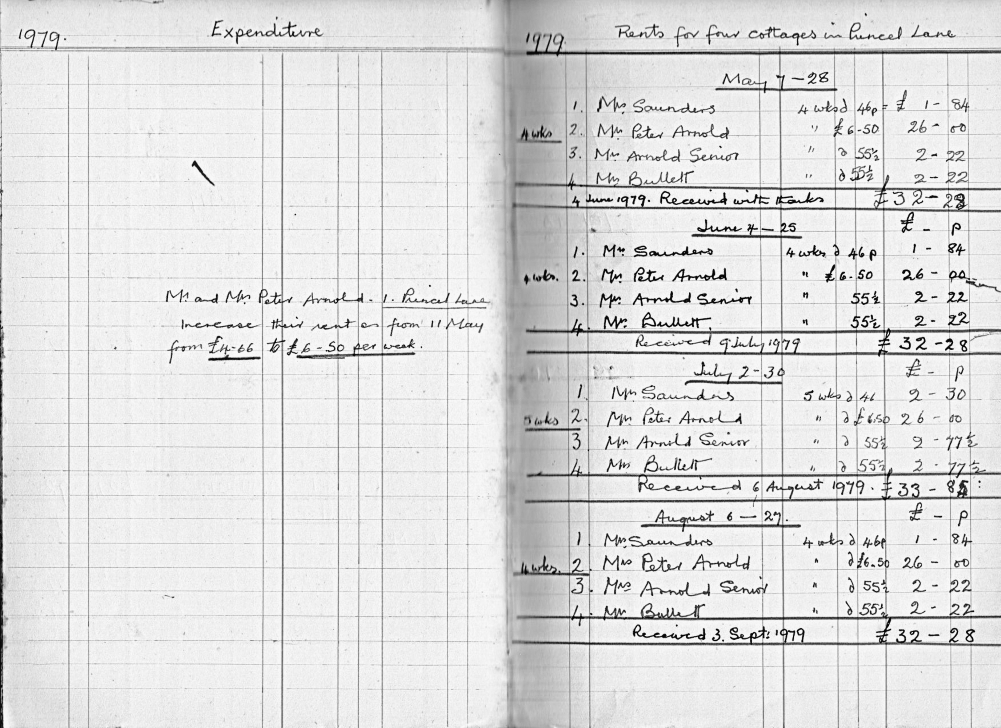 1979. Expenditure
Mr and Mrs Peter Arnold - 1. Pincel Lane
Increase their rent as from 11 May
from £4-66 to £6-50 per week.
1979. Rents for four cottages in Pincel Lane
May 7-28
1. Mrs Saunders 4 wks @ 46p = £ 1 - 84
4 wks 2. Mrs Peter Arnold " £6-50 26 - 00
3. Mrs Arnold Senior " @ 55½ 2 - 22
4. Mrs Bullett " @ 55½ 2 - 22
4 June 1979. Received with thanks £32 - 28
June 4 - 25 £ - p
1. Mrs Saunders 4 wks @ 46p 1 - 84
4 wks. 2. Mrs Peter Arnold " £6.50 26 - 00
3. Mrs Arnold Senior " 55½ 2 - 22
4. Mrs Bullett. " 55½ 2 - 22
Received 9 July 1979 £32 - 28
July 2-30 £ - p
1. Mrs Saunders 5 wks @ 46 2 - 30
5 wks 2. Mrs Peter Arnold " @ £6.50 26 - 00
3 Mrs Arnold Senior " @ 55½ 2 - 77½
4. Mrs Bullett " @ 55½ 2 - 77½
Received 6 August 1979. £33 - 85
August 6 - 27. £ - p
1. Mrs Saunders 4 wks @ 46p 1 - 84
4 wks. 2. Mrs Peter Arnold " @ £6.50 26 - 00
3. Mrs Arnold Senior " @ 55½ 2 - 22
4. Mrs Bullett " @ 55½ 2 - 22
Received 3. Sept: 1979 £32 - 28